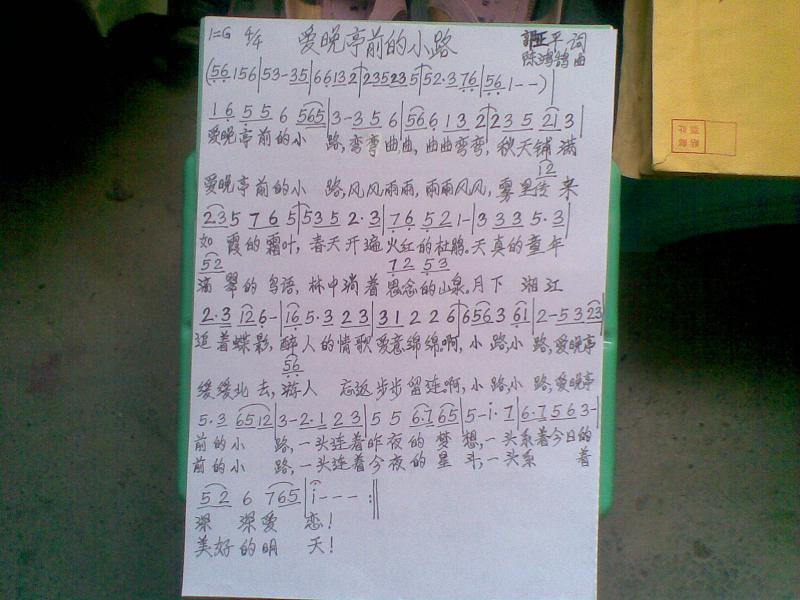 1=G 4/4 爱晚亭前的小路 郭正平 词
陈鸿鹄 曲
(56 156|53-35|66132|235235|52·376|561--)|
16556 565|3-356|566132|235 213|
爱晚亭前的小 路,弯弯曲曲,曲曲弯弯,秋天铺满
12
爱晚亭前的小 路,风风雨雨,雨雨风风,雾里传来
2357 65|5352·3|76521-|3335·3|
如 霞的霜叶,春天开遍火红的杜鹃。天真的童年
52 72 53
滴翠的鸟语,林中淌着思念的山泉。月下 湘江
2·3 126-|165·323|31226|6563 61|2-5323|
追着蝶影,醉人的情歌爱意绵绵。啊,小路,小路,爱晚亭
56
缓缓北去,游人 忘返步步留连。啊,小路,小路,爱晚亭
5·3 6512|3-2·123|55 6·765|5-i·7|6·7563-|
前的小 路,一头连着昨夜的梦想,一头系着今日的
前的小 路,一头连着今夜的星斗,一头系 着
52 6 765|i---:‖
深 深爱 恋!
美好的明 天!